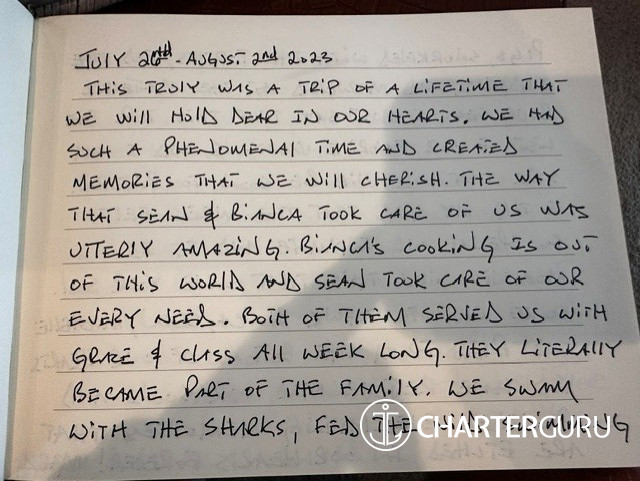 JULY 26th - AUGUST 2nd 2023
THIS TRULY WAS A TRIP OF A LIFETIME THAT
WE WILL HOLD DEAR IN OUR HEARTS. WE HAD
SUCH A PHENOMENAL TIME AND CREATED
MEMORIES THAT WE WILL CHERISH. THE WAY
THAT SEAN & BIANCA TOOK CARE OF US WAS
UTTERLY AMAZING. BIANCA'S COOKING IS OUT
OF THIS WORLD AND SEAN TOOK CARE OF OUR
EVERY NEED. BOTH OF THEM SERVED US WITH
GRACE & CLASS ALL WEEK LONG. THEY LITERALLY
BECAME PART OF THE FAMILY. WE SWAM
WITH THE SHARKS, FED THE WILD SWIMMING
CHARTERGURU